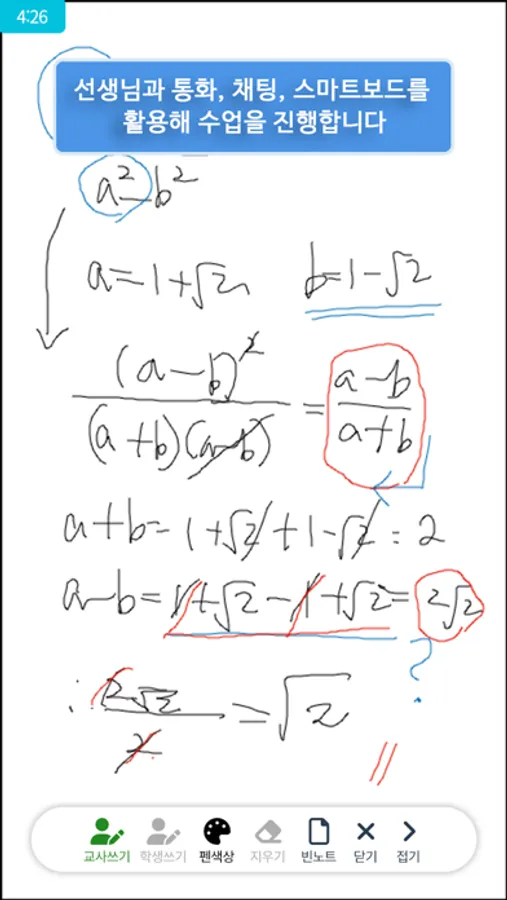 4:26
선생님과 통화, 채팅, 스마트보드를
활용해 수업을 진행합니다
a²-b²
a=1+√2 b=1-√2
(a-b)²/(a+b)(a-b) = a-b/a+b
a+b=1+√2+1-√2=2
a-b=1+√2-1+√2=2√2
?
2√2/2=√2
교사쓰기 학생쓰기 펜색상 지우기 빈노트 닫기 접기